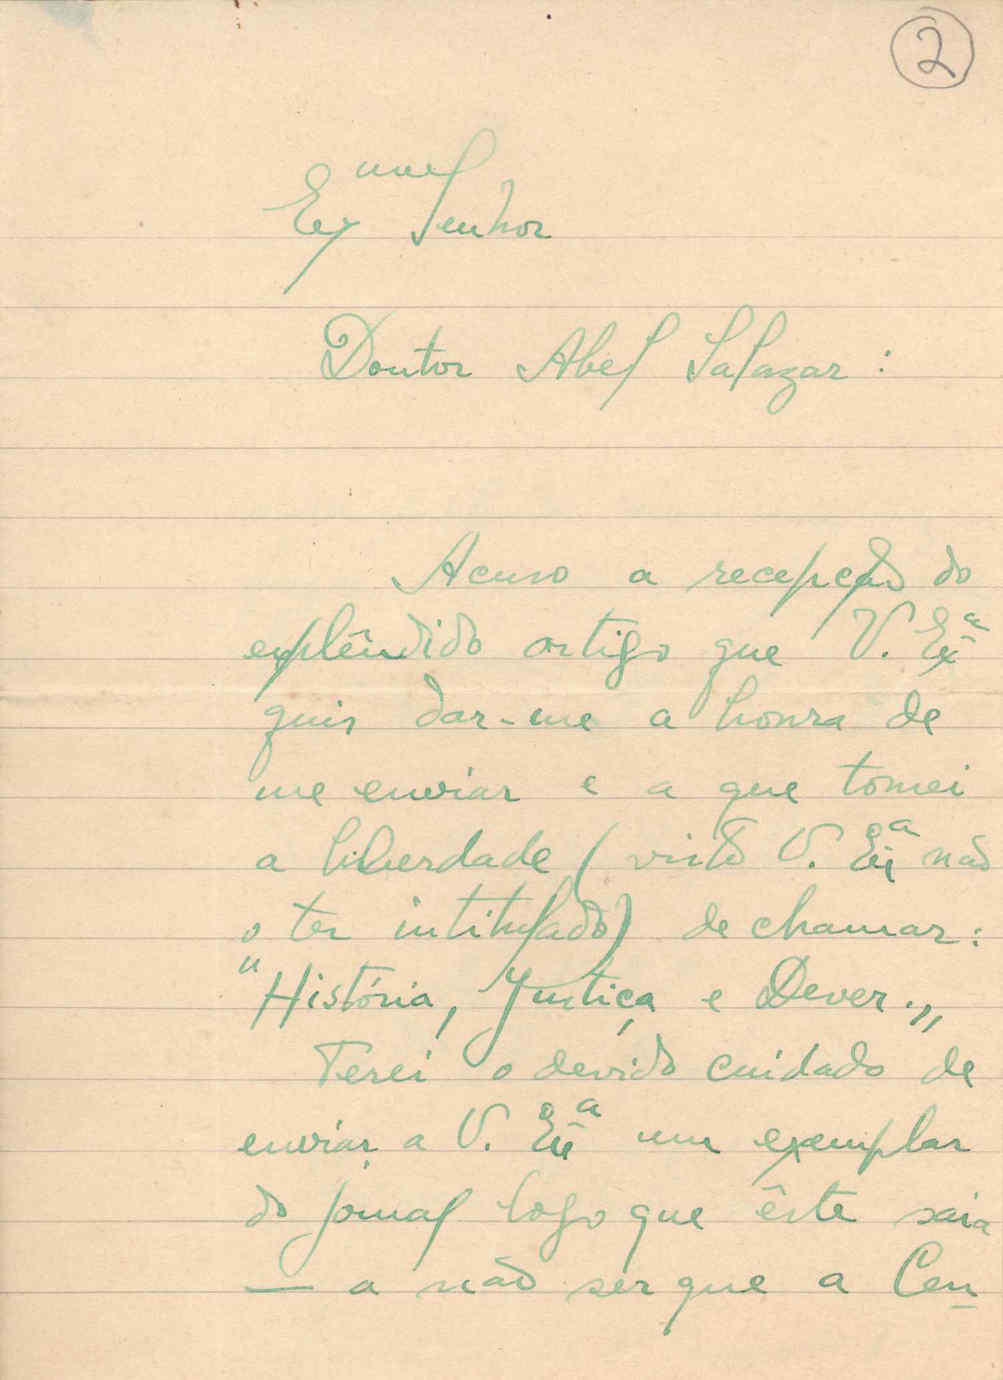 2
Exmo Senhor
Doutor Abel Salazar:
Acuso a recepção do
explêndido artigo que V. Exª
quis dar-me a honra de
me enviar e a que tomei
a liberdade (visto V. Exª não
o ter intitulado) de chamar:
"História, Justiça e Dever."
Terei o devido cuidado de
enviar a V. Exª um exemplar
do jornal logo que êste saia
— a não ser que a Cen